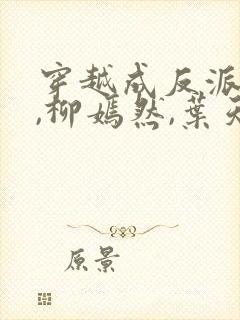 穿越成反派
,柳嫣然,葉天
原景